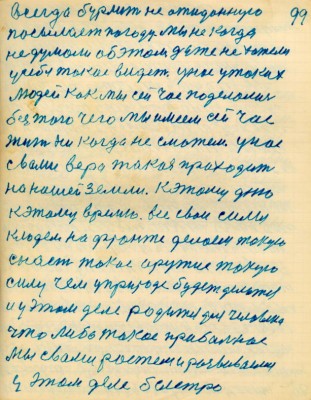 всегда бурлит не ожиданную 99
посылает погоду. Мы не когда
не думали об этом даже не хотели
у себя такое видеть у нас у таких
людей как мы сей час поделались
без того чего мы имеем сей час
жить ни когда не сможем. у нас
с вами вера такая приходит
на нашей земли. К этому дню
к этому время. все свои силы
кладем на фронте делаем такую
снасть такое оружие такую
силу чем у природе будет делатся
и у этом деле родится для человека
что либо такое прибальное
мы с вами ростем и развиваемся
у этом деле быстро